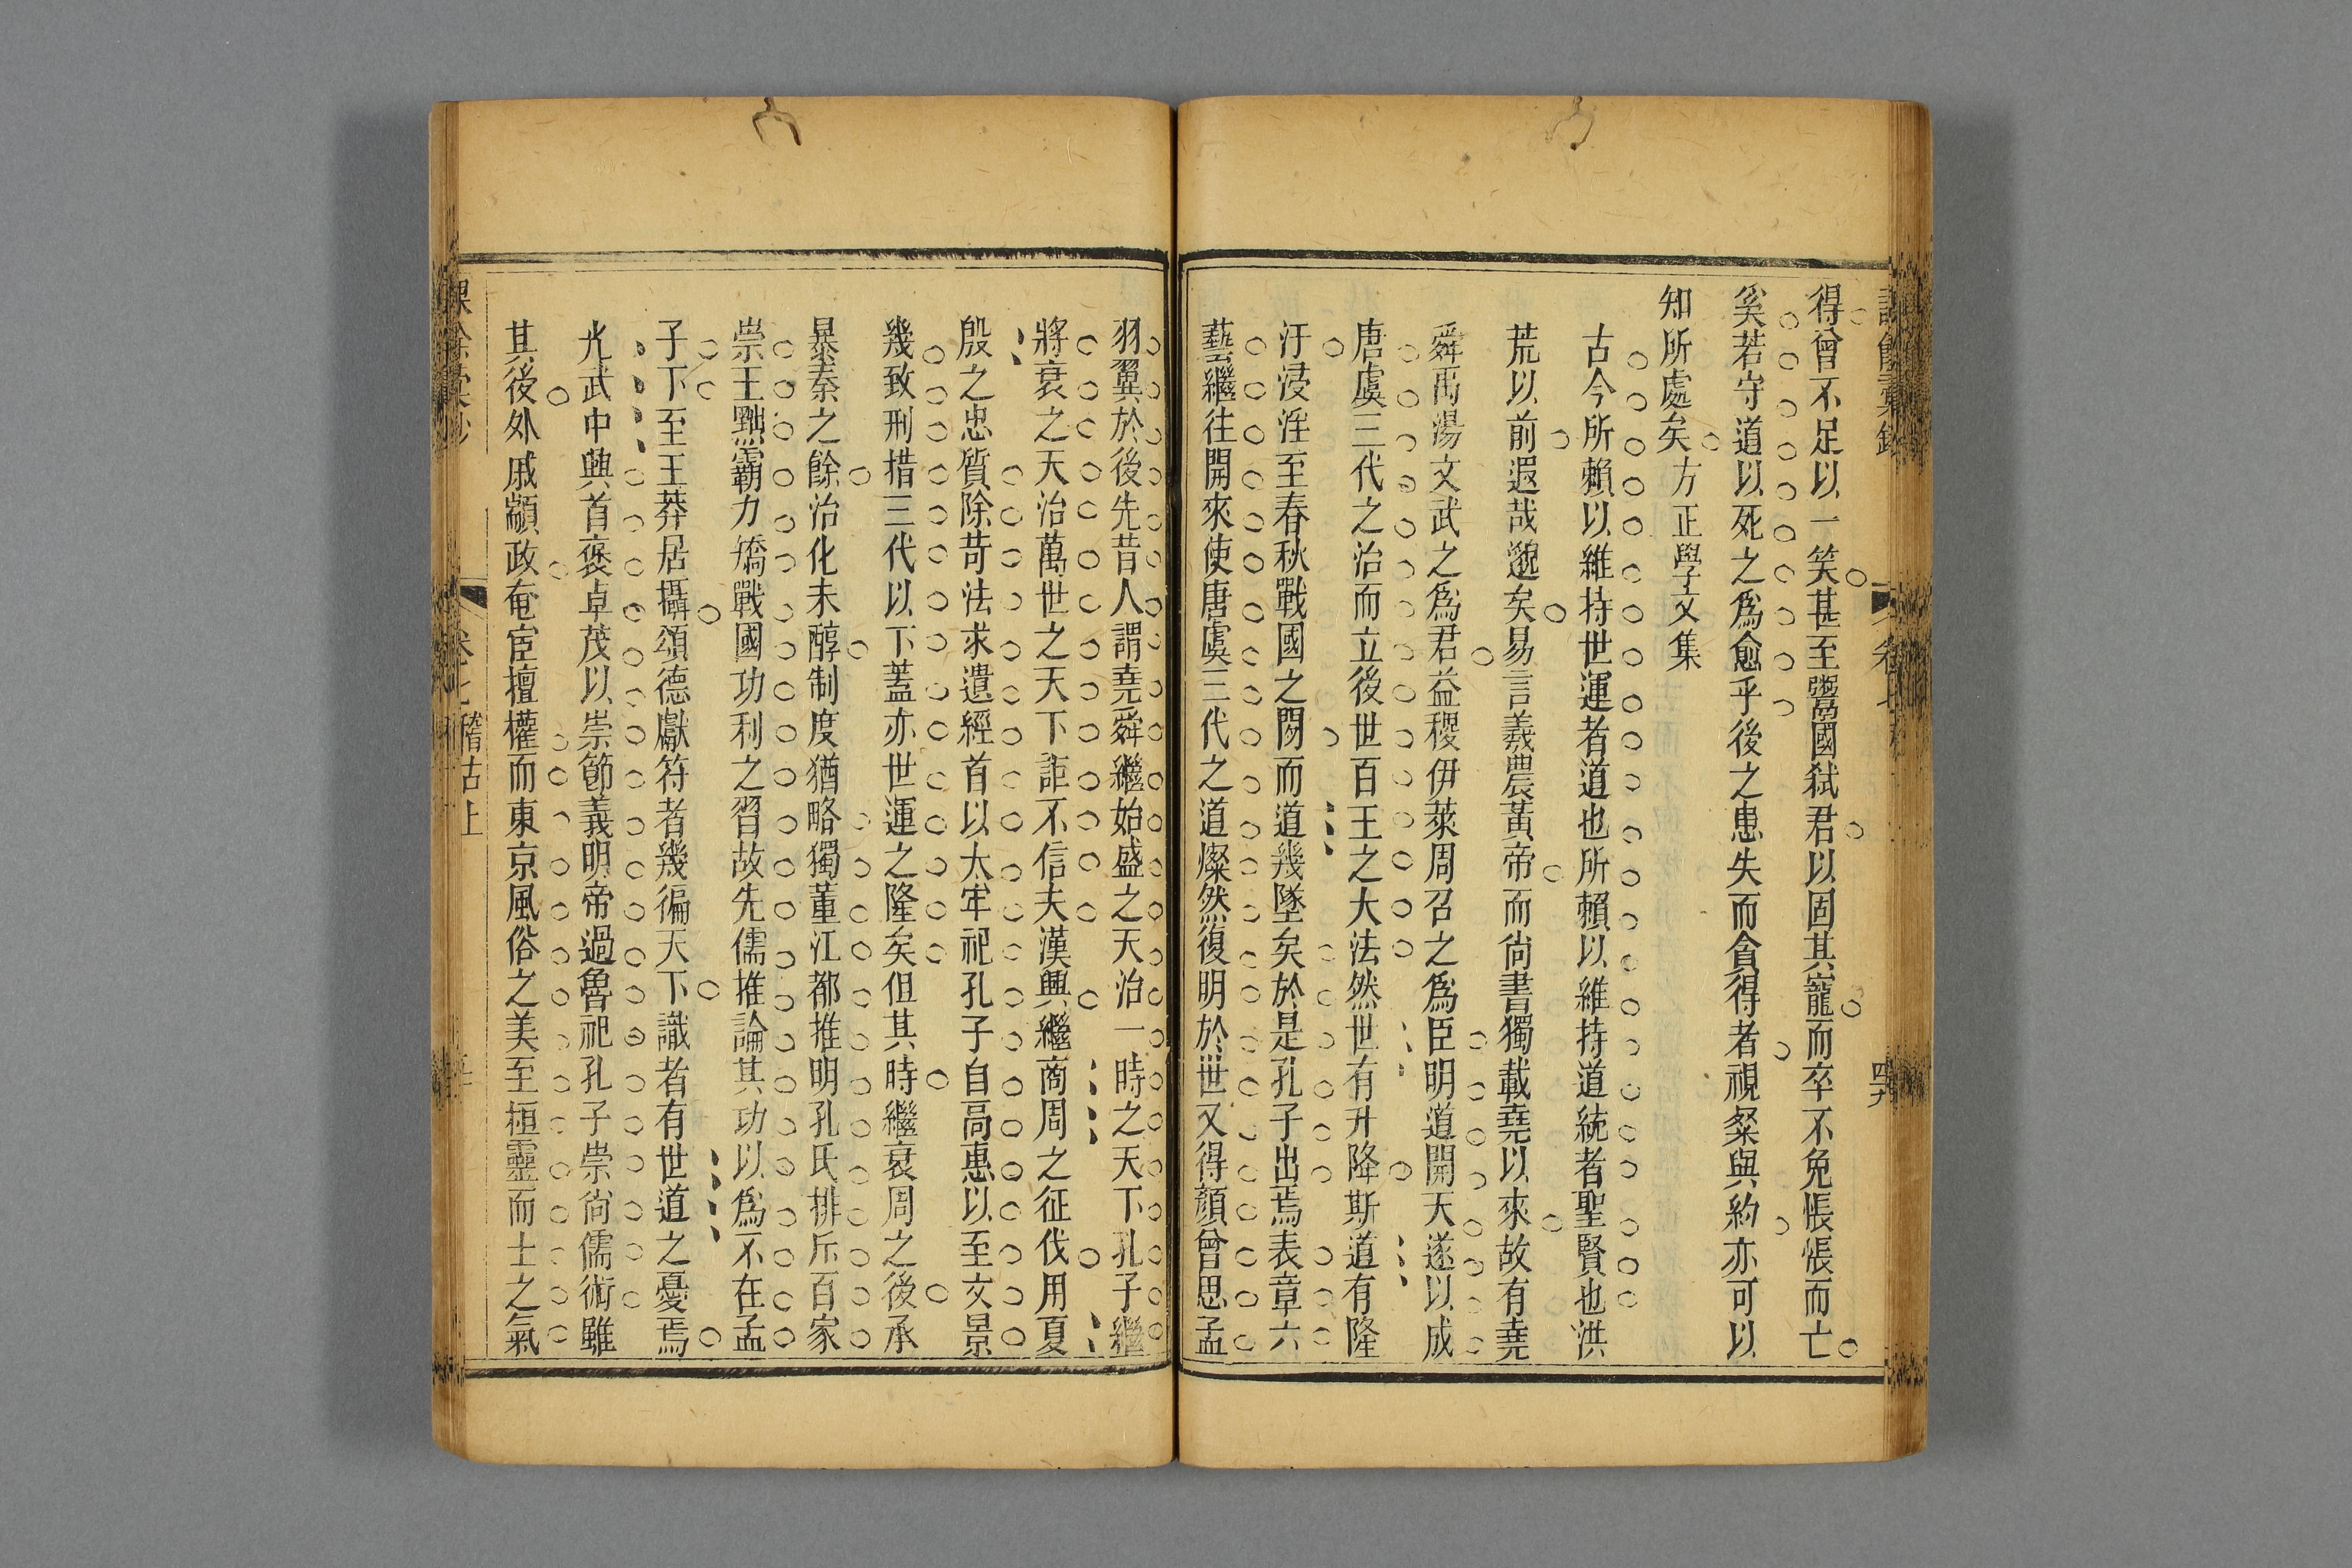 得曾不足以一笑甚至鬻國弑君以固其寵而卒不免悵悵而亡
奚若守道以死之爲愈乎後之患失而貪得者視粲與約亦可以
知所處矣方正學文集
古今所賴以維持世運者道也所賴以維持道統者聖賢也洪
荒以前遐哉邈矣易言羲農黃帝而尚書獨載堯以來故有堯
舜禹湯文武之爲君益稷伊萊周召之爲臣明道開天遂以成
唐虞三代之治而立後世百王之大法然世有升降斯道有隆
汙浸淫至春秋戰國之閒而道幾墜矣於是孔子出焉表章六
藝繼往開來使唐虞三代之道燦然復明於世又得顏曾思孟
羽翼於後先昔人謂堯舜繼始盛之天治一時之天下孔子繼
將衰之天治萬世之天下詎不信夫漢興繼商周之征伐用夏
殷之忠質除苛法求遺經首以太牢祀孔子自高惠以至文景
幾致刑措三代以下蓋亦世運之隆矣但其時繼衰周之後承
暴秦之餘治化未醇制度猶略獨董江都推明孔氏排斥百家
崇王黜霸力矯戰國功利之習故先儒推論其功以爲不在孟
子下至王莽居攝頌德獻符者幾徧天下識者有世道之憂焉
光武中興首褒卓茂以崇節義明帝過魯祀孔子崇尚儒術雖
其後外戚顓政奄宦擅權而東京風俗之美至桓靈而士之氣
稽古上